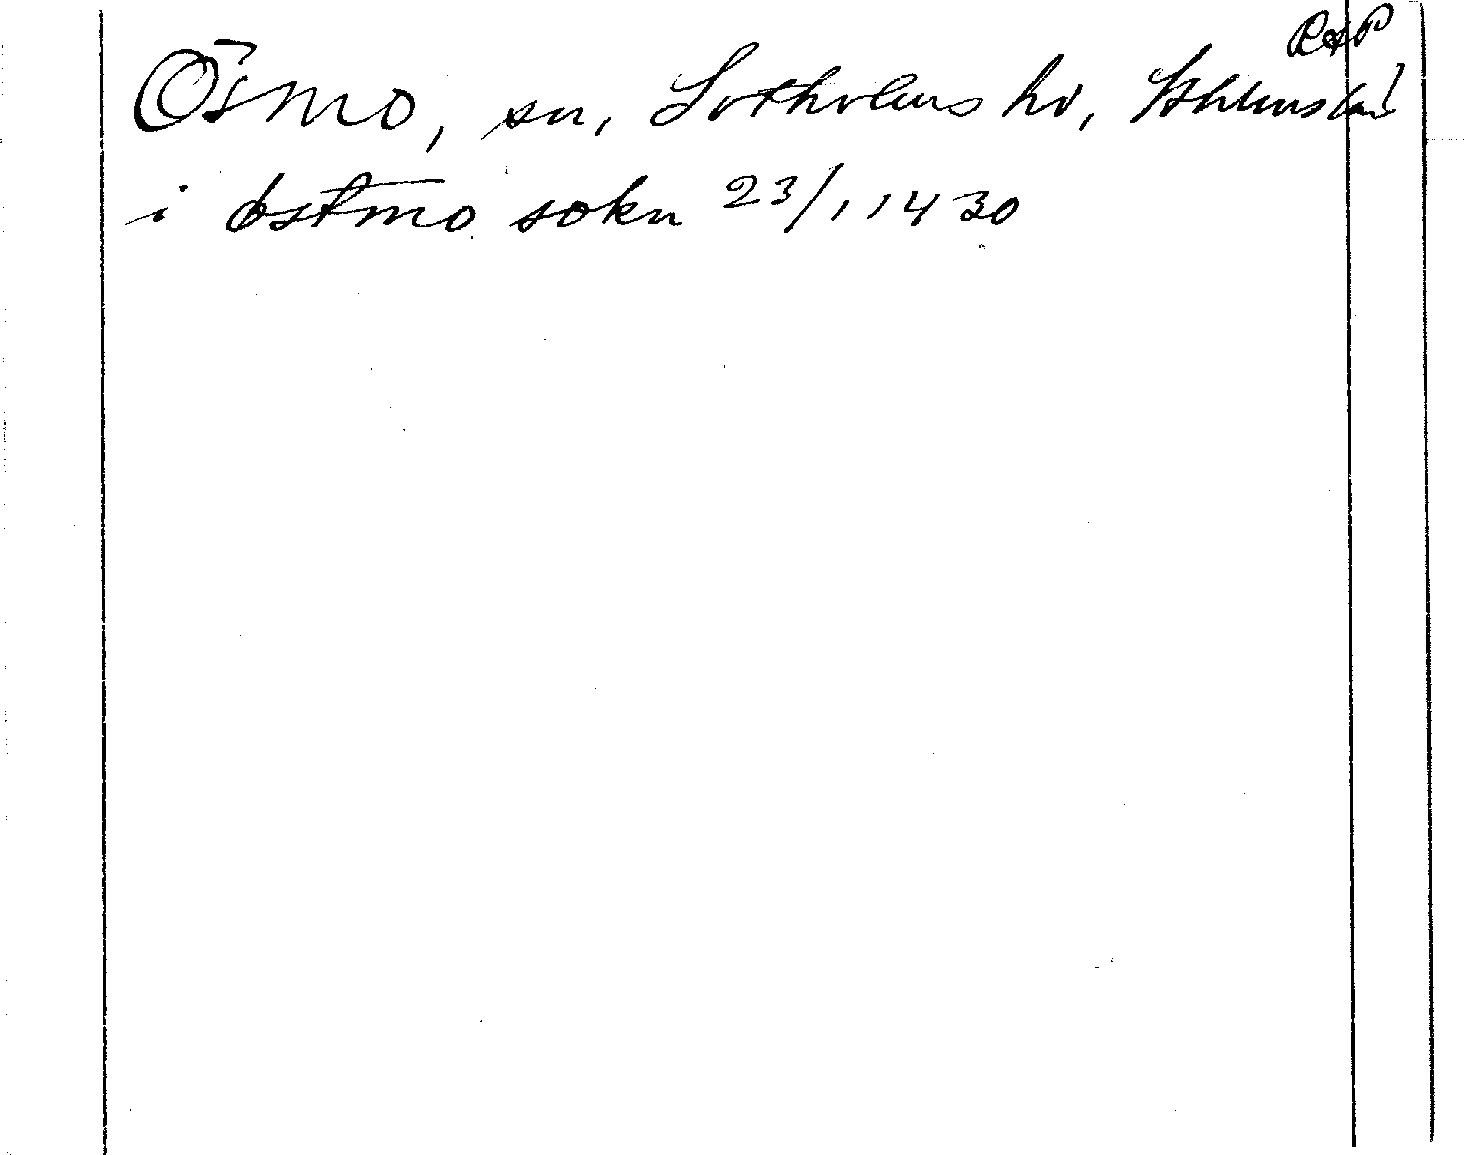 RAP
Ösmo, sn, Sotholms hd, Sthlms län
i østmo sokn 23/1 1430